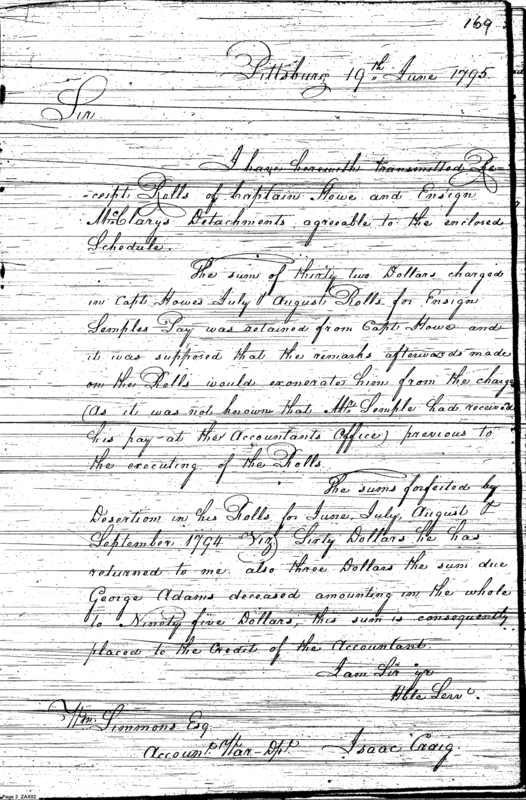 169
Pittsburg 19th June 1795
Sir
I have herewith transmitted Re-
-ceipt Rolls of Captain Howe and Ensign
McClarys Detachments agreeable to the enclosed
Schedule.
The sum of thirty two Dollars charged
in Capt. Howes July & August Rolls for Ensign
Semples Pay was retained from Capt. Howe and
it was supposed that the remarks afterwards made
on the Rolls would exonerate him from the charge
(As it was not known that Mr. Semple had received
his pay at the Accountants Office) previous to
the executing of the Rolls
The sums forfeited by
Desertion in his Rolls for June, July, August &
September 1794 Viz Sixty Dollars he has
returned to me also three Dollars the sum due
George Adams deceased amounting in the whole
to Ninety five Dollars, this sum is consequently
placed to the Credit of the Accountant.
I am Sir yr
Hble Servt.
Wm. Simmons Esq
Account. War-Dpt.
Isaac Craig
Page 3 ZAX02